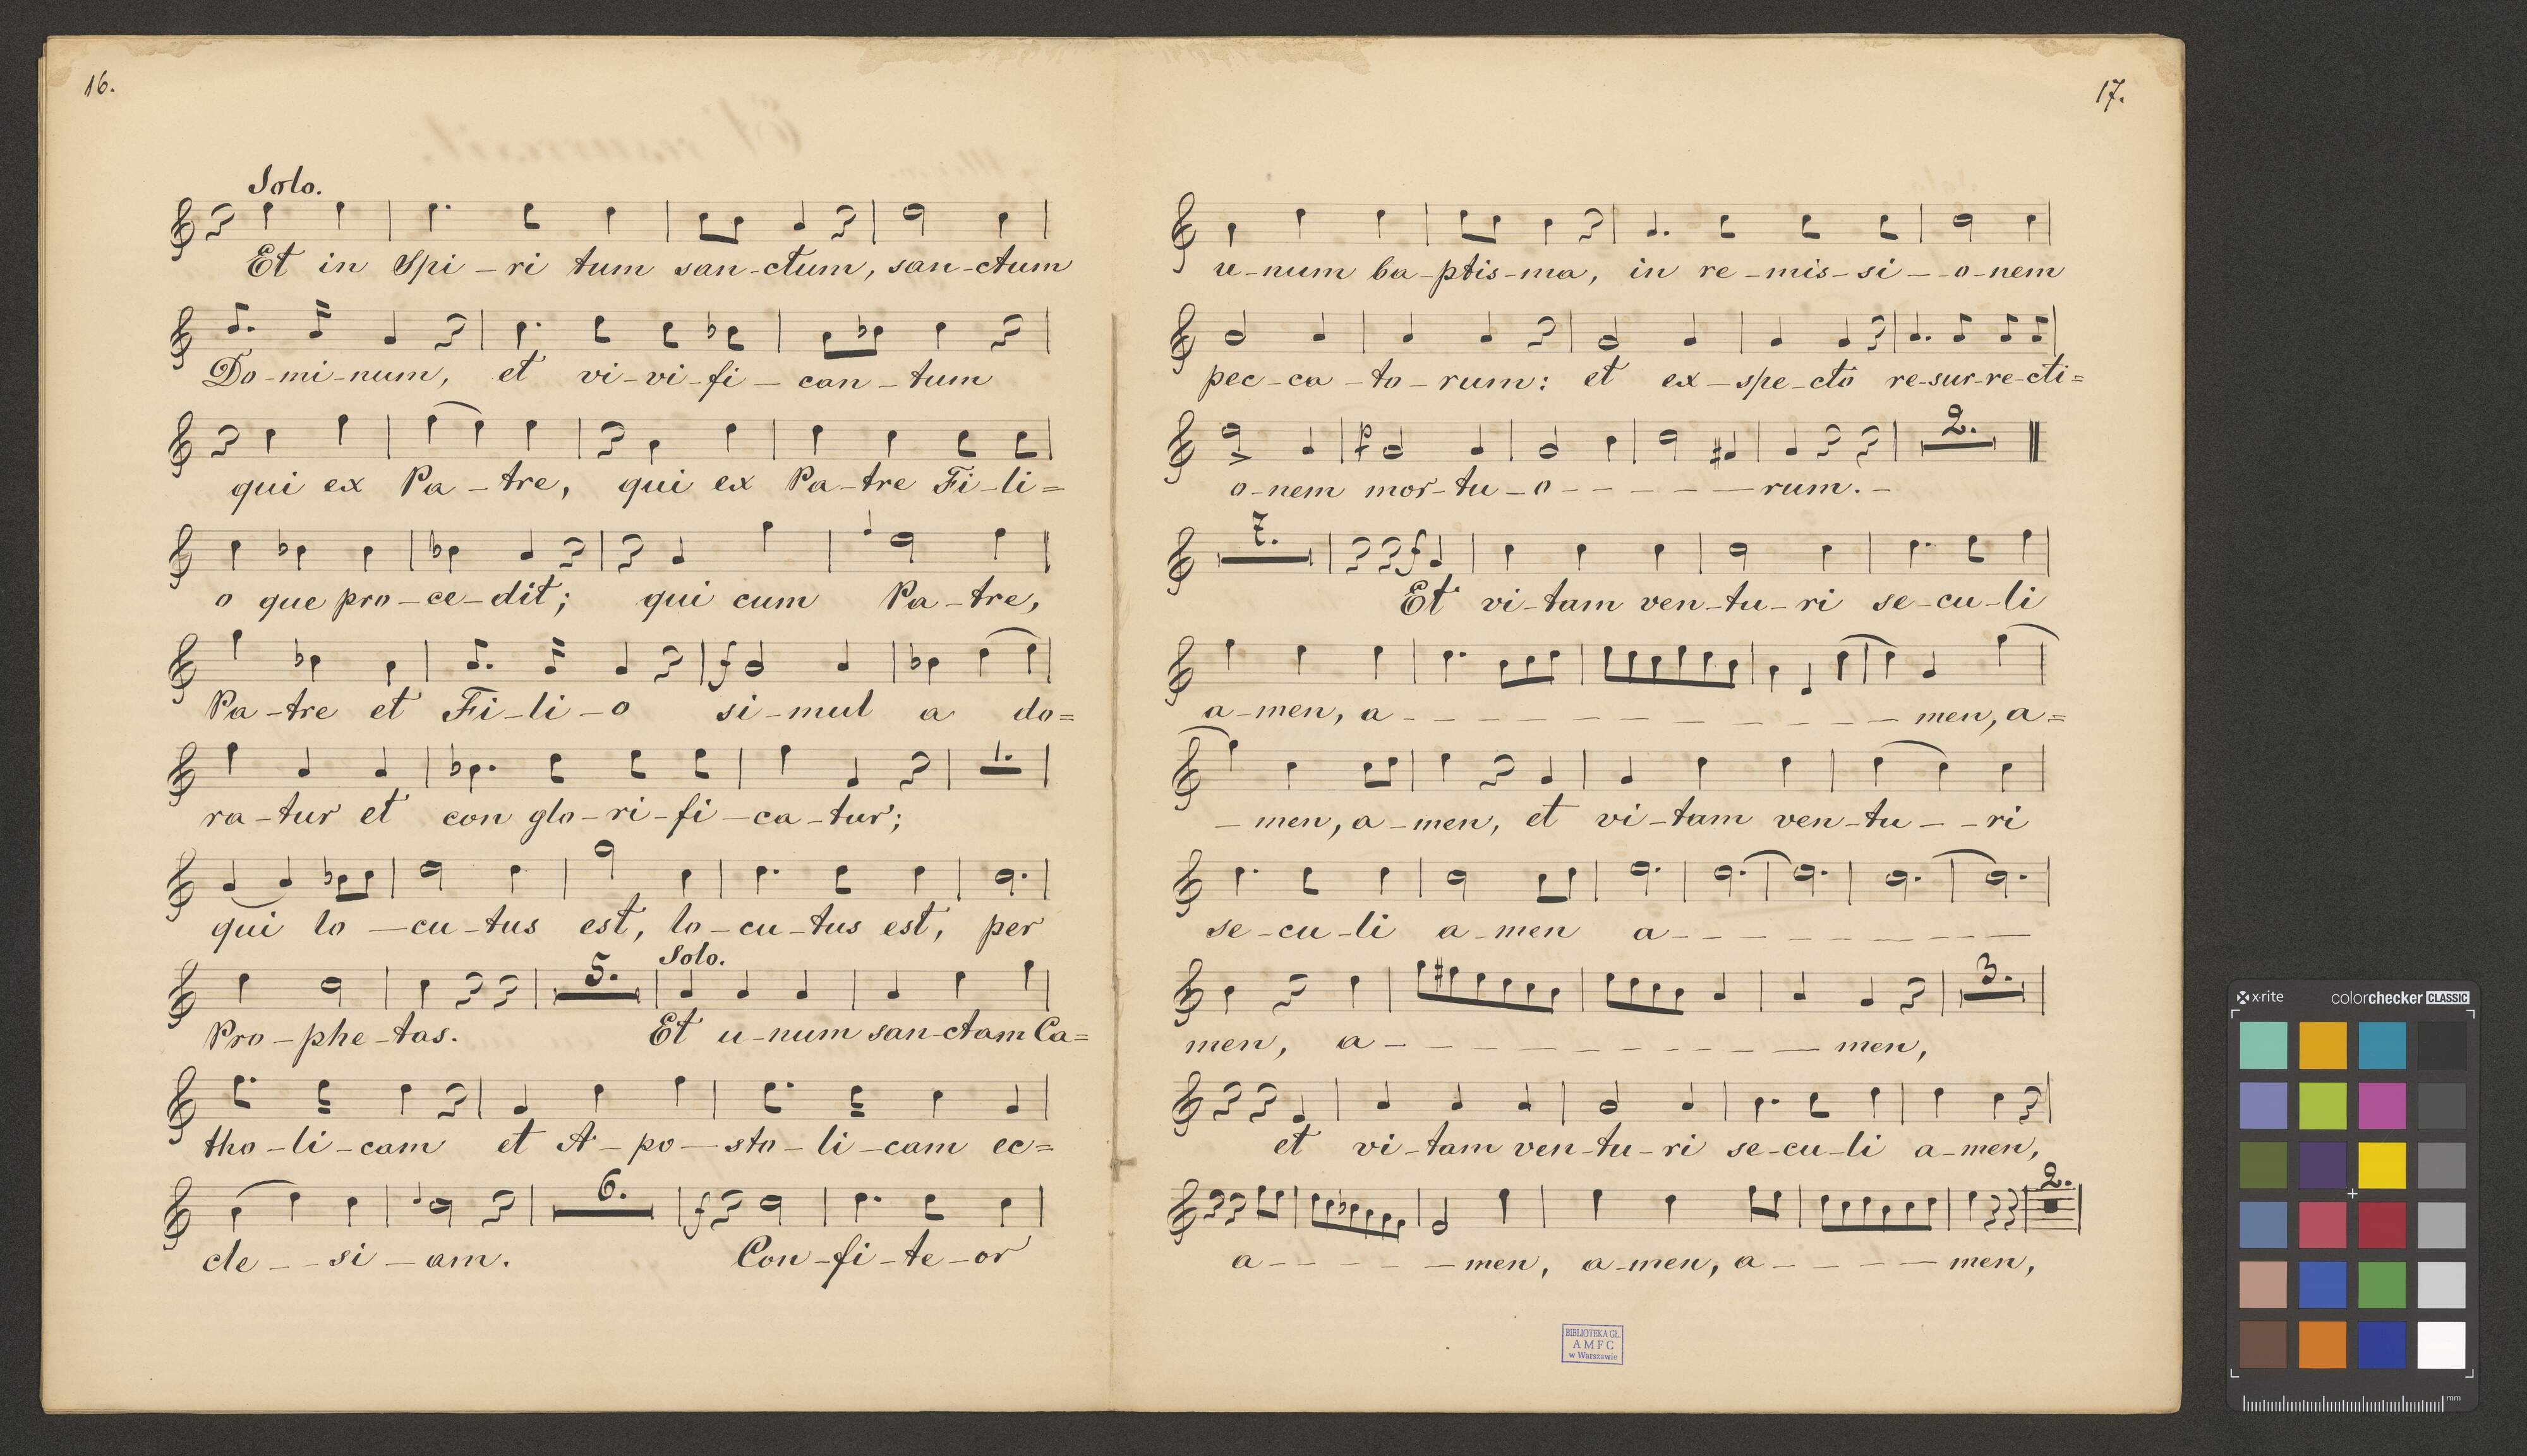 16.
Solo.
Et in Spi - ri tum san - ctum, san - ctum
Do - mi - num, et vi - vi - fi - can - tum
qui ex Pa - tre, qui ex Pa - tre Fi - li =
o que pro - ce - dit; qui cum Pa - tre,
Pa - tre et Fi - li - o f si - mul a do =
ra - tur et con glo - ri - fi - ca - tur;
1.
qui lo - cu - tus est, lo - cu - tus est, per
5. Solo.
Pro - phe - tas. Et u - num san - ctam Ca =
tho - li - cam et A - po - sto - li - cam ec =
6. f
cle - - si - am. Con - fi - te - or
17.
u - num ba - ptis - ma, in re - mis - si - - o - nem
pec - ca - to - rum: et ex - spe - cto re - sur - re - cti =
p 2.
o - nem mor - tu - o - - - - - - rum. -
7. f
Et vi - tam ven - tu - ri se - cu - li
a - men, a - - - - - - - - - - - men, a =
- men, a - men, et vi - tam ven - tu - - ri
se - cu - li a - men a - - - - - - - -
3.
men, a - - - - - - - - - men,
et vi - tam ven - tu - ri se - cu - li a - men,
2.
a - - - - - men, a - men, a - - - - - men,
BIBLIOTEKA GŁ.
AMFC
w Warszawie
x-rite colorchecker CLASSIC
mm